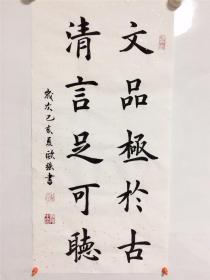 文品極於古
清言足可聽
歲次己亥夏歐強書